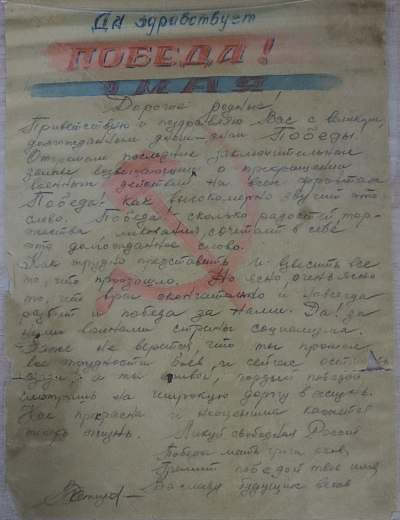 Да здравствует
ПОБЕДА!
1 МАЯ
Дорогие родные!
Приветствую и поздравляю Вас с великим
долгожданным днем - днем Победы!
Отгремели последние заключительные
залпы возвещающие о прекращении
военных действий на всех фронтах
Победа! Как высокомерно звучит это
слово. Победа! сколько радости, тор-
жества ликования, сочетает в себе
это долгожданное слово.
Как трудно представить и взвесить все
то, что произошло. Но ясно, очень ясно
то, что враг окончательно и навсегда
разбит и победа за нами. Да! за
нами воинами страны социализма.
Даже не верится, что ты прошел
все трудности боев, и сейчас
а ты живой, гордый победой
смотришь на широкую дорогу в жизнь.
прекрасна и неоценима кажется
теперь жизнь. Ликуй свободная Россия
Победы мать
Гремит победой твое имя
Во славу будущих веков